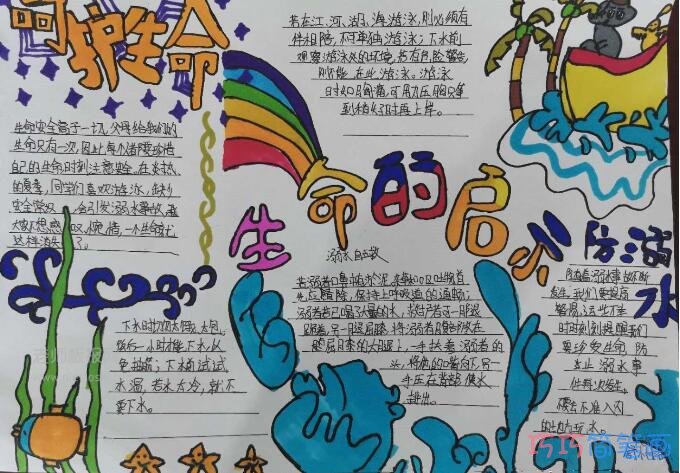 呵护生命
生命安全高于一切,父母给我们的
生命只有一次,因此每个都要珍惜
自己的生命时刻注意安全。在炎热
的夏季,同学们喜欢游泳,缺少
安全常识,会引发溺水事故,
一个生命就
这样消失了。
下水时切勿太饿、太饱。
饭后一小时才能下水,以
免抽筋;下水前试试
水温,若水太冷,就不
要下水。
若在江、河、湖、海游泳,则必须有
伴相陪,不可单独游泳;下水前
观察游泳处的环境,若有危险警告
则不能在此游泳。游泳
时如
到稍好时再上岸。
生命的启示
溺水自救
若溺者口鼻有淤泥、杂草和呕吐物,首
先应清除,保持上呼吸道的通畅;
溺者若已喝了大量的水,救护者可一腿
跪着,另一腿屈膝,将溺者腹部放在
屈膝的大腿上,一手扶着溺者的
头,将他的嘴向下,另一
手压在背部使水
排出。
防溺水
随着溺水事故不断
发生,我们要提高
警惕,
时时刻刻提醒我们
要珍爱生命,防
止溺水事
件再次发生。
水。
巧巧简笔画